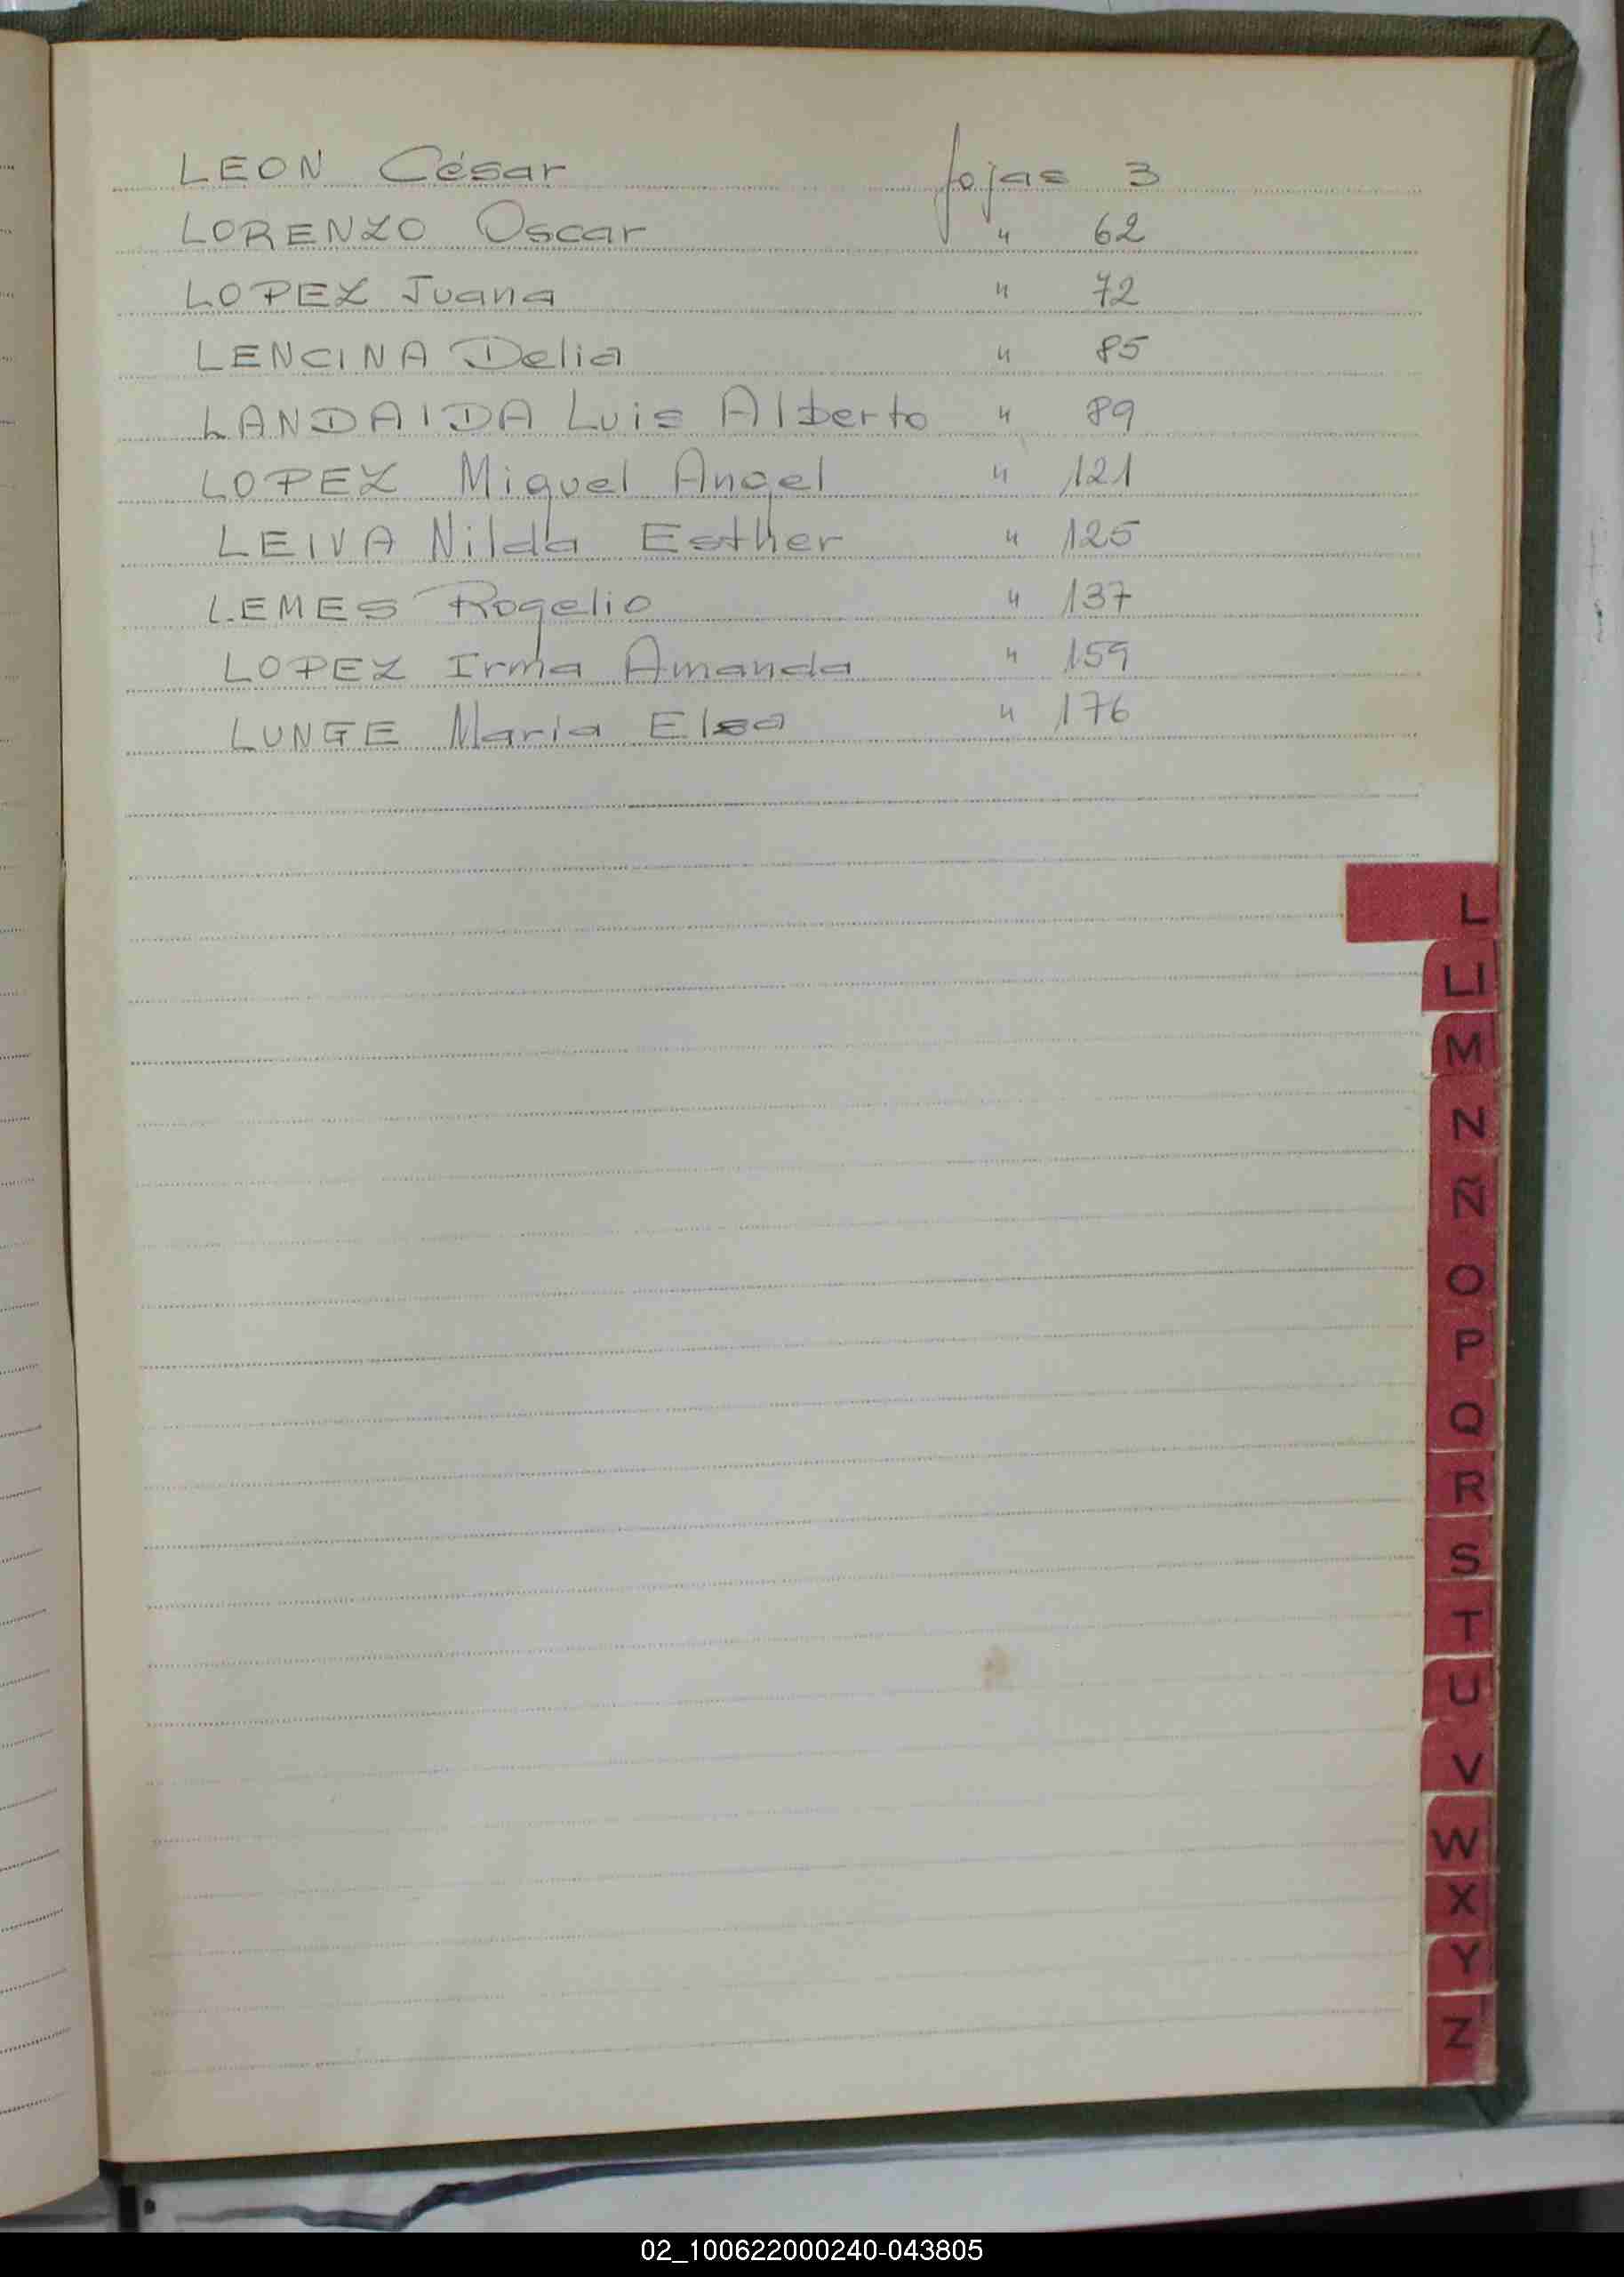 LEON César fojas 3
LORENZO Oscar " 62
LOPEZ Juana " 72
LENCINA Delia " 85
LANDAIDA Luis Alberto " 89
LOPEZ Miguel Angel " 121
LEIVA Nilda Esther " 125
LEMES Rogelio " 137
LOPEZ Irma Amanda " 159
LUNGE Maria Elsa " 176
L
Ll
M
N
Ñ
O
P
Q
R
S
T
U
V
W
X
Y
Z
02_100622000240-043805